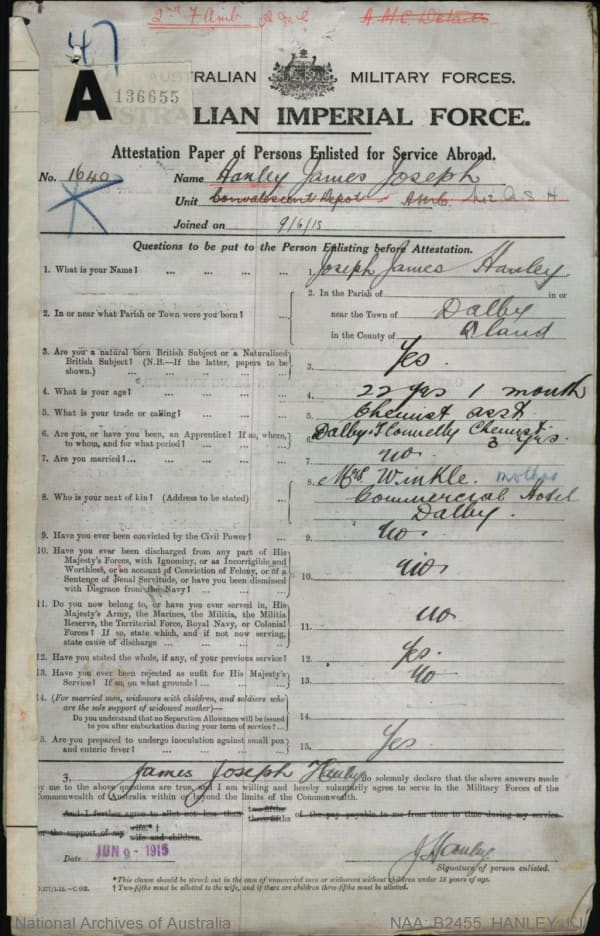 2nd F Amb A.M.C A.M.C Details
47
A 136655
AUSTRALIAN MILITARY FORCES.
AUSTRALIAN IMPERIAL FORCE.
Attestation Paper of Persons Enlisted for Service Abroad.
No. 1640 Name Hanley James Joseph
Unit Convalescent Depot A.M.C. No 2 A S H
Joined on 9/6/15
Questions to be put to the Person Enlisting before Attestation.
1. What is your Name? ... ... ... ... 1. Joseph James Hanley
2. In or near what Parish or Town were you born? ... 2. In the Parish of in or
near the Town of Dalby
in the County of Qland
3. Are you a natural born British Subject or a Naturalised
British Subject? (N.B.—If the latter, papers to be
shown.) ... ... ... 3. Yes.
4. What is your age? ... ... ... ... 4. 22 yrs 1 month
5. What is your trade or calling? ... ... ... 5. Chemist asst
6. Are you, or have you been, an Apprentice? If so, where,
to whom, and for what period? ... ... ... 6. Dalby. Flonnelly Chemist. 3 yrs.
7. Are you married?... ... ... ... ... 7. no.
8. Who is your next of kin? (Address to be stated) ... 8. Mrs. Winkle. mother
Commercial Hotel
Dalby.
9. Have you ever been convicted by the Civil Power? ... 9. no.
10. Have you ever been discharged from any part of His
Majesty's Forces, with Ignominy, or as Incorrigible and
Worthless, or on account of Conviction of Felony, or of a
Sentence of Penal Servitude, or have you been dismissed
with Disgrace from the Navy? ... ... ... 10. no.
11. Do you now belong to, or have you ever served in, His
Majesty's Army, the Marines, the Militia, the Militia
Reserve, the Territorial Force, Royal Navy, or Colonial
Forces? If so, state which, and if not now serving,
state cause of discharge ... ... ... 11. no
12. Have you stated the whole, if any, of your previous service? 12. Yes.
13. Have you ever been rejected as unfit for His Majesty's
Service? If so, on what grounds? ... ... ... 13. No
14. (For married men, widowers with children, and soldiers who
are the sole support of widowed mother)—
Do you understand that no Separation Allowance will be issued
to you after embarkation during your term of service? ... 14.
5. Are you prepared to undergo inoculation against small pox
and enteric fever? ... ... ... ... 15. Yes.
3. James Joseph Hanley do solemnly declare that the above answers made
by me to the above questions are true, and I am willing and hereby voluntarily agree to serve in the Military Forces of the
Commonwealth of Australia within or beyond the limits of the Commonwealth.
And I further agree to allot not less than two-fifths three-fifths of the pay payable to me from time to time during my service
for the support of my wife.* † wife and children.
Date JUN 9 - 1915 J J Hanley
Signature of person enlisted.
*This clause should be struck out in the case of unmarried men or widowers without children under 18 years of age.
† Two-fifths must be allotted to the wife, and if there are children three-fifths must be allotted.
National Archives of Australia NAA: B2455, HANLEY J J